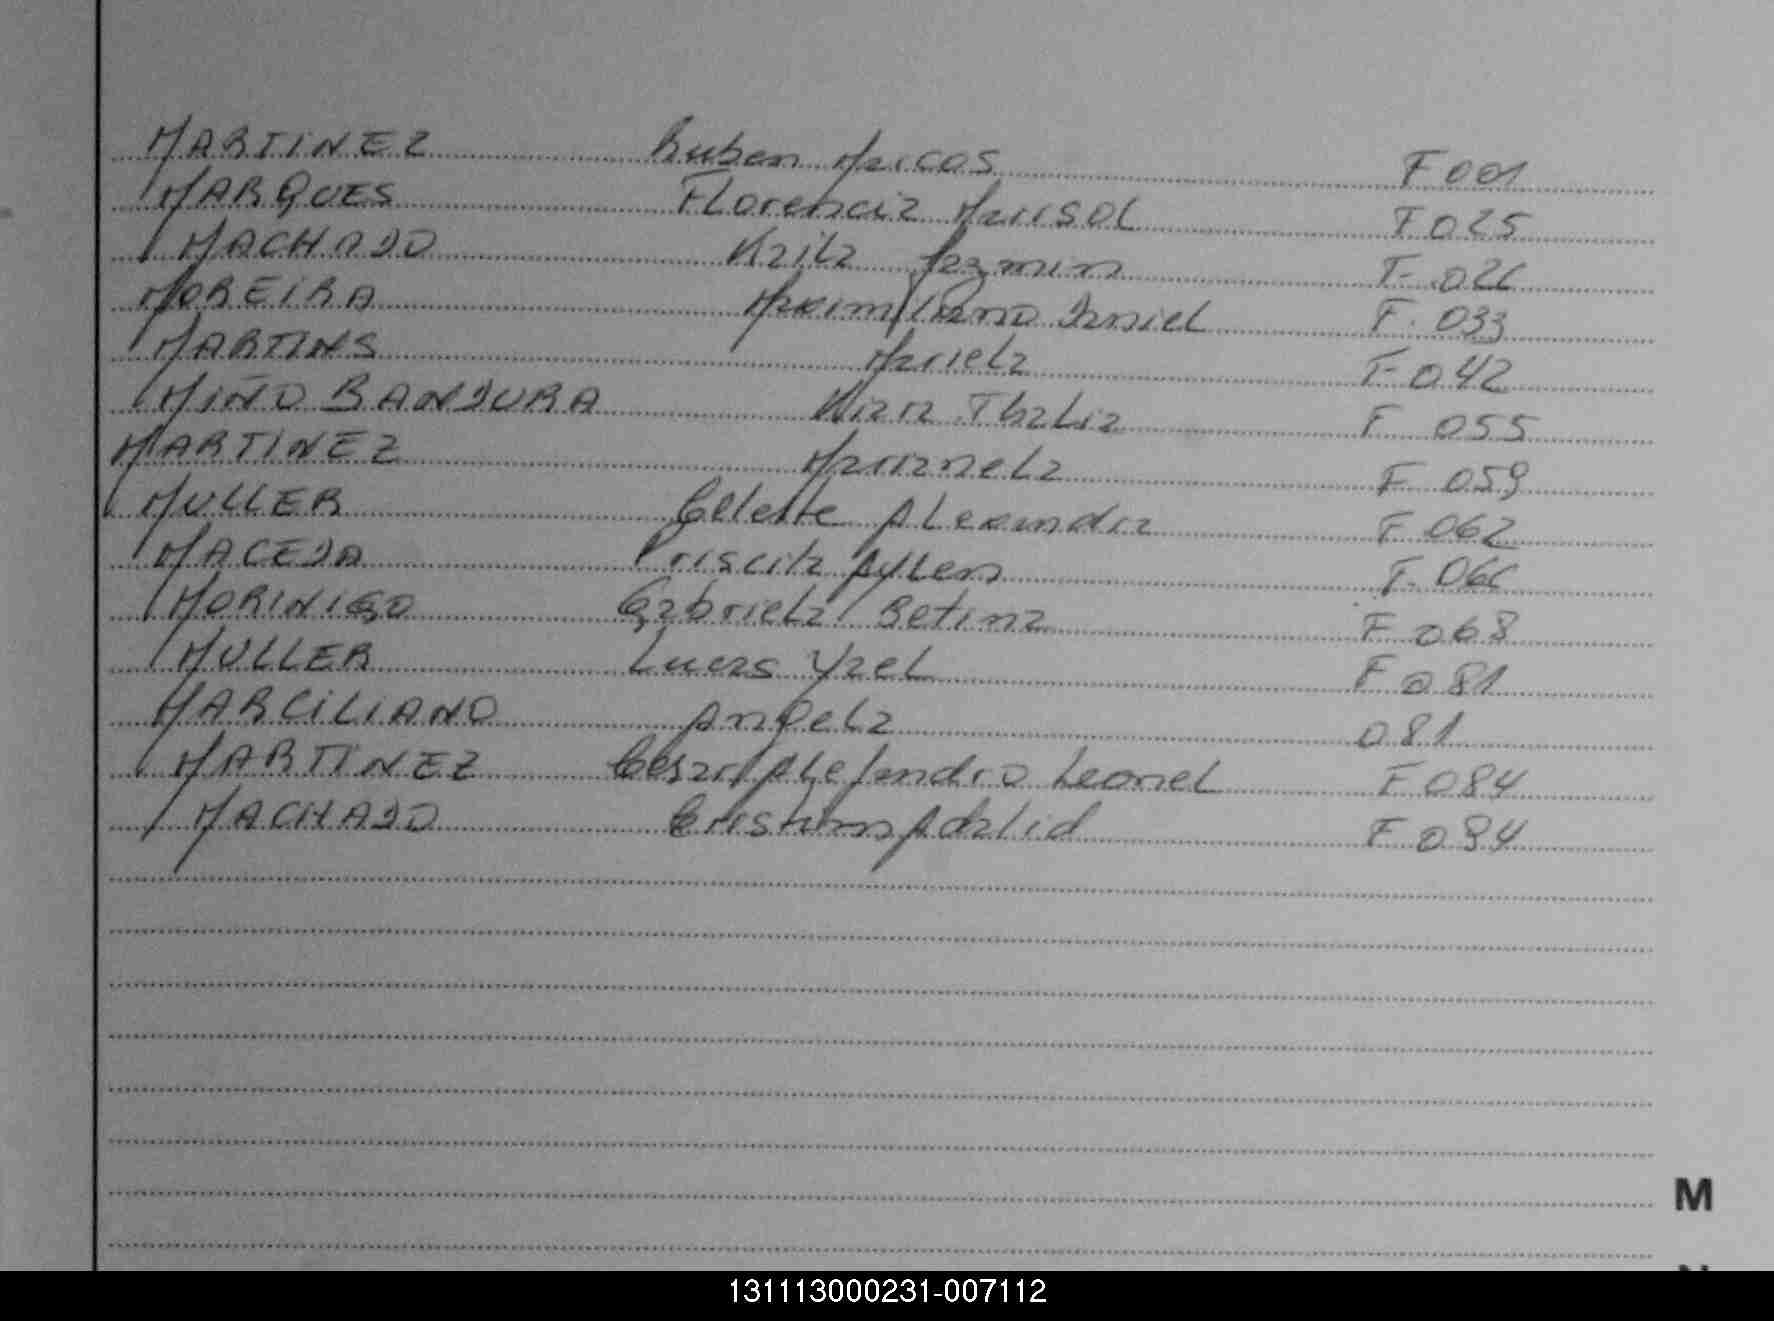 MARTINEZ Ruben Marcos F 001
MARQUES Florencia Marisol F 025
MACHADO Keila Jazmin F 026
MOREIRA Maximiliano Daniel F. 033
MARTINS Mariela F 042
MIÑO BANDURA Kiara Thalia F 055
MARTINEZ Marianela F 059
MULLER Celeste Alexandra F 062
MACEDA Priscila Aylen F. 066
MORINIGO Gabriela Betina F 068
MULLER Lucas Yael F 081
MARCILIANO Angela 081
MARTINEZ Cesar Alejandro Leonel F 084
MACHADO Cristian Adalid F 094
M
131113000231-007112